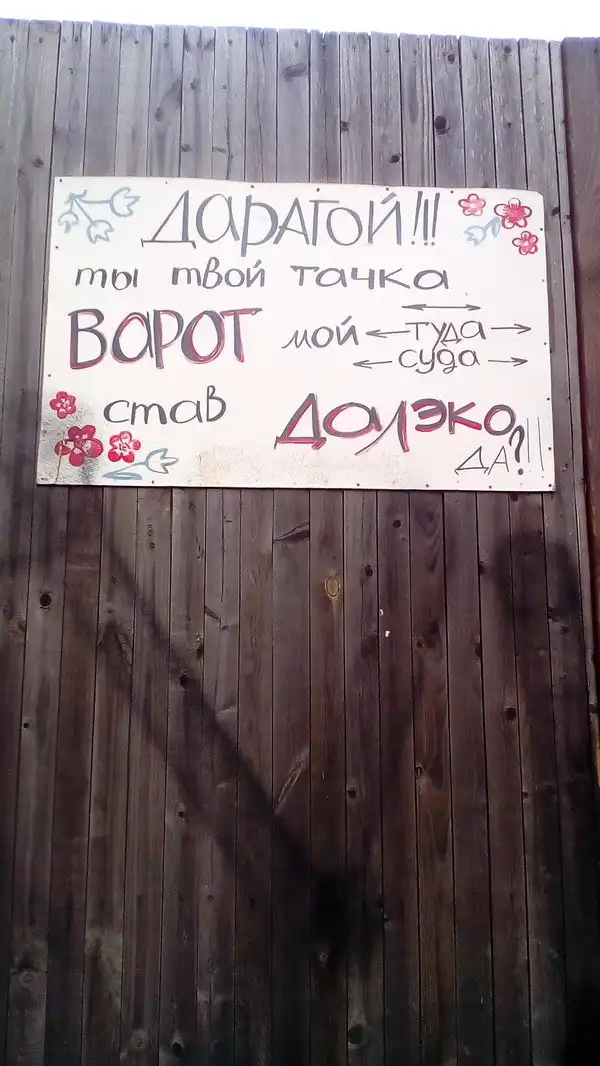 ДАРАГОЙ!!!
ты твой тачка
ВАРОТ мой туда
суда
став ДАЛЭКО
ДА?!!